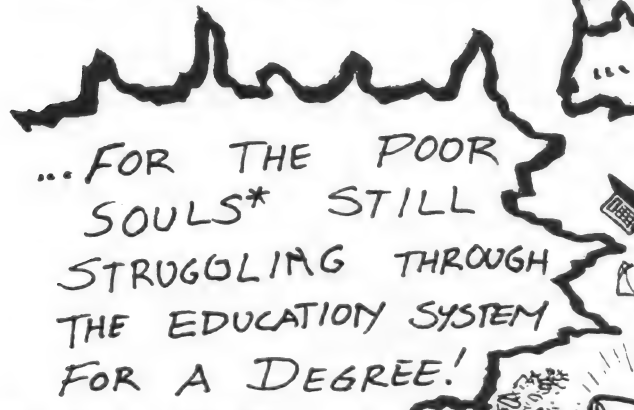 ...FOR THE POOR
SOULS* STILL
STRUGGLING THROUGH
THE EDUCATION SYSTEM
FOR A DEGREE!
...